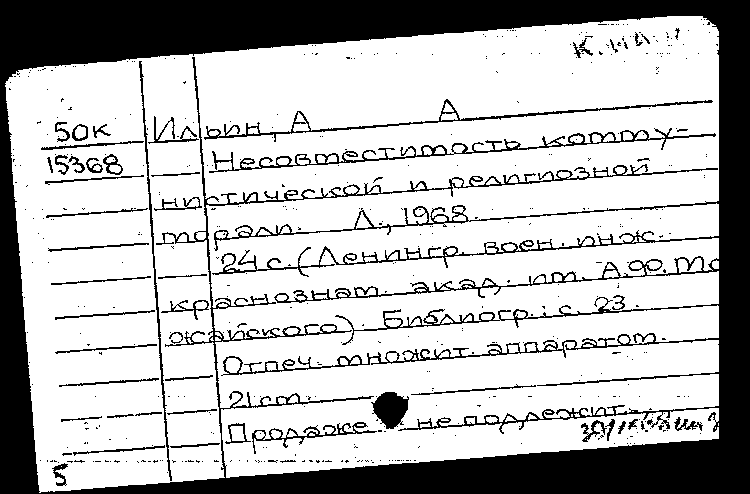 50К Ильин, А А
15368 Несовместимость комму-
нистической и религиозной
морали. Л., 1968.
24 с. (Ленингр. воен. инж.
краснознам. акад. им. А.Ф.Мо
жайского) Библиогр.: с. 23.
Отпеч. множит. аппаратом.
21 cm.
Продаже не подлежит.
5